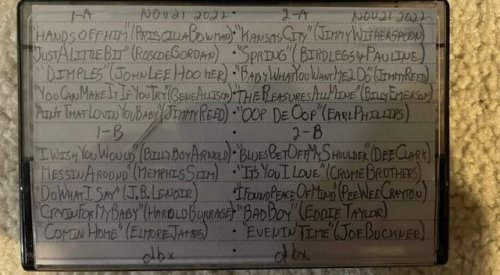 1-A NOV 21 2022 2-A NOV 21 2022
HANDS OFF HIM" (PRISCILLA BOWMAN) • "KANSAS CITY" (JIMMY WITHERSPOON)
JUST A LITTLE BIT" (ROSCOE GORDAN) • "SPRING" (BIRDLEGS & PAULINE)
"DIMPLES" (JOHN LEE HOOKER) • "BABY WHAT YOU WANT ME 2 DO" (JIMMY REED)
"YOU CAN MAKE IT IF YOU TRY" (GENE ALLISON) THE PLEASURES ALL MINE" (BILLY EMERSON)
"AIN'T THAT LOVIN YOU BABY" (JIMMY REED) • "OOP DE OOP" (EARL PHILLIPS)
1-B 2-B
"I WISH YOU WOULD" (BILLY BOY ARNOLD) • "BLUES GET OFF MY SHOULDER" (DEE CLARK)
"MESSIN AROUND" (MEMPHIS SLIM) • "IT'S YOU I LOVE" (CROME BROTHERS)
"DO WHAT I SAY" (J.B. LENOIR) • I FOUND PEACE OF MIND" (PEE WEE CRAYTON)
"CRYIN FOR MY BABY" (HAROLD BURRAGE) • "BAD BOY" (EDDIE TAYLOR)
"COMIN HOME" (ELMORE JAMES) • "EVENIN TIME" (JOE BUCKNER)
dbx • dbx